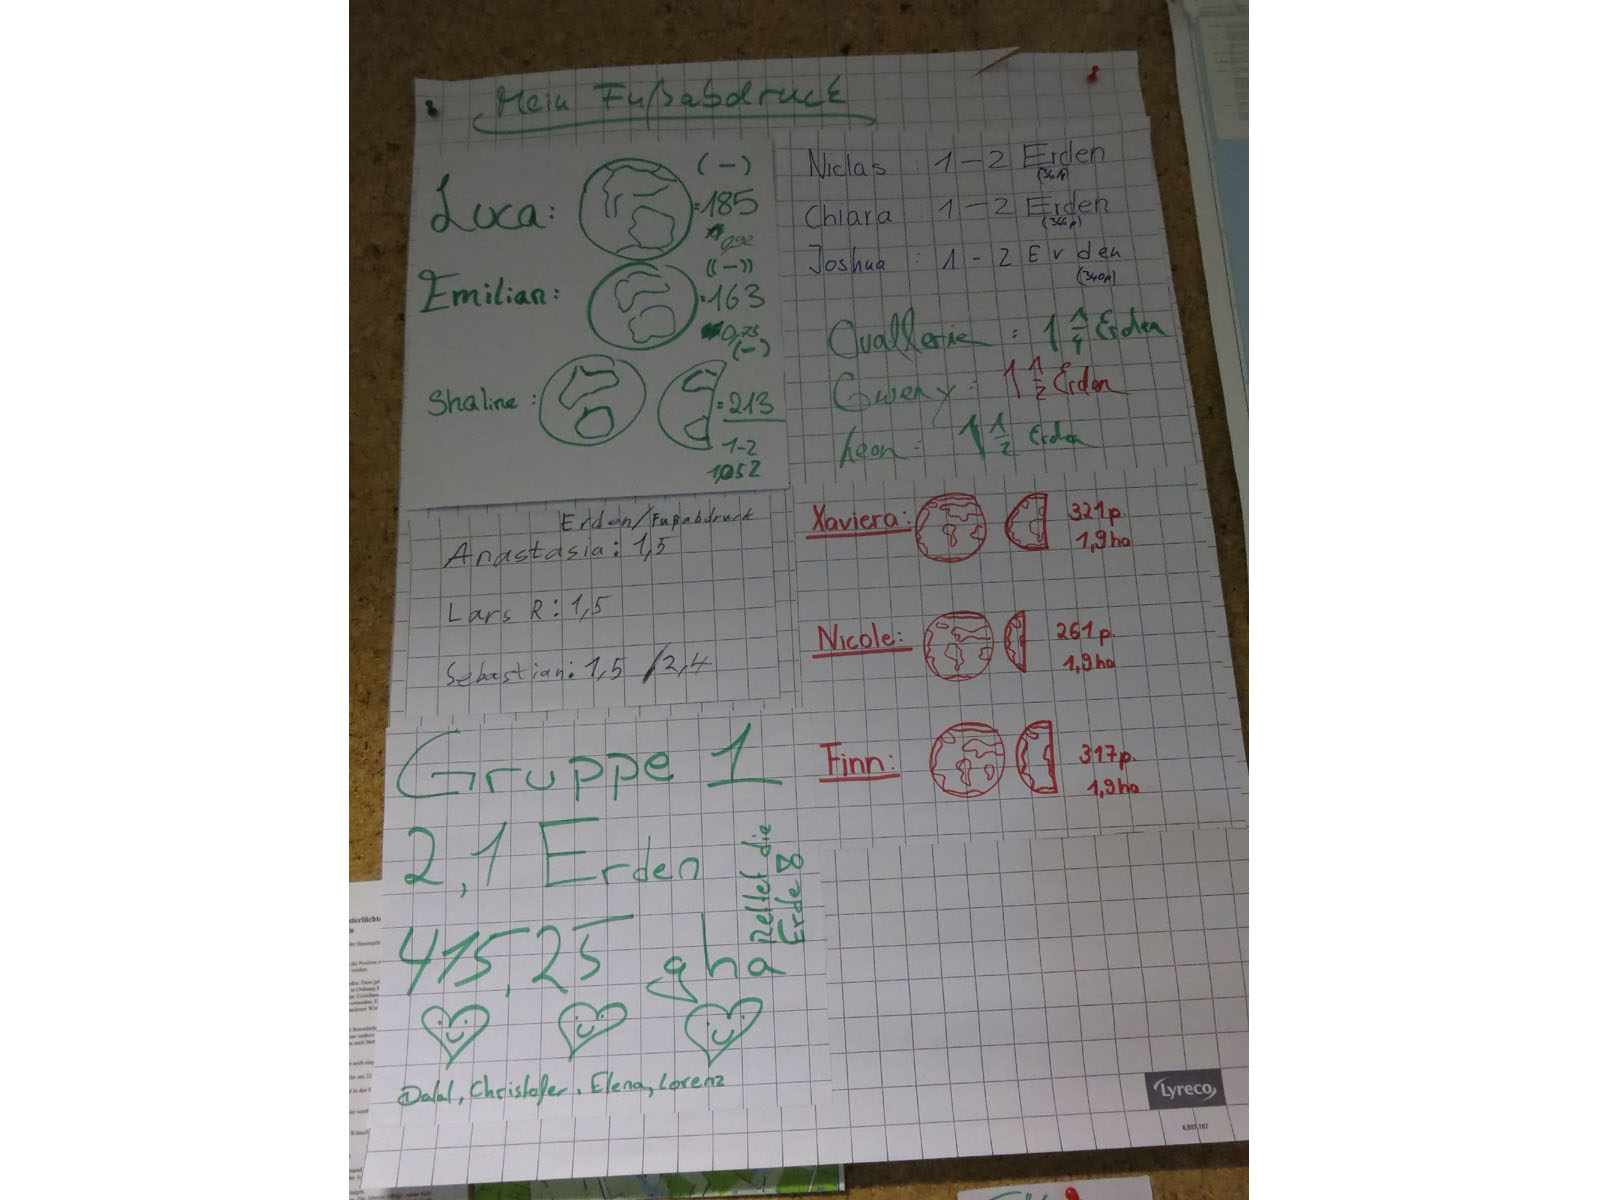 Mein Fußabdruck
Luca:
(-)
=185
0,92
Emilian:
((-))
=163
0,75
(-)
Shaline:
=213
1-2
1,052
Niclas : 1-2 Erden
Chiara : 1-2 Erden
Joshua : 1-2 Erden
(340p)
: 1 1/4 Erden
Gweny: 1 1/2 Erden
Leon: 1 1/2 Erden
Erden/Fußabdruck
Anastasia: 1,5
Lars R: 1,5
Sebastian: 1,5 /2,4
Xaviera:
321p.
1,9ha
Nicole:
261p.
1,9ha
Finn:
317p.
1,9ha
Gruppe 1
2,1 Erden
415,25 gha
Rettet die
Erde
Dalal, Christofer, Elena, Lorenz
Lyreco